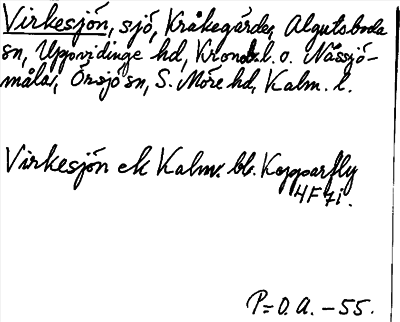 Virkesjön, sjö, Kråkegårde, Algutsboda
sn, Uppvidinge hd, Kronob. l. o. Nässjö-
måla, Örsjö sn, S. Möre hd, Kalm. l.
Virkesjön ek Kalm. bl. Kopparfly
4F 7i.
P= O.A. - 55.